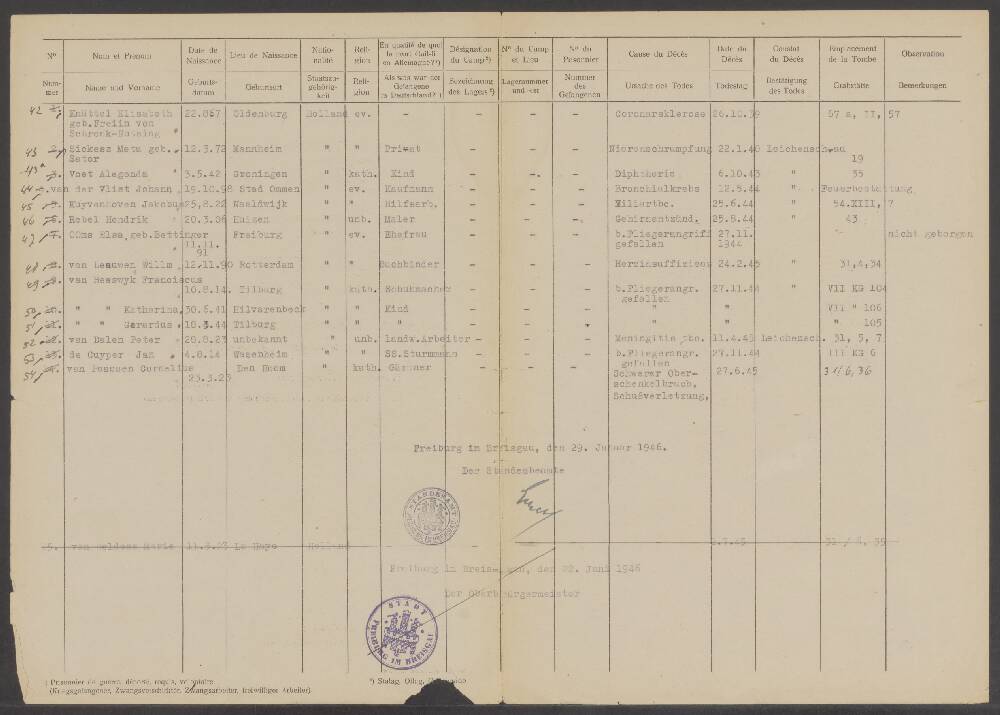 N° Nom et Prenom Date de Naissance Lieu de Naissance Natio-nalité Reli-gion En qualité de quoi Désignation du Camp²) N° du Camp et Lieu N° du Prisonnier Cause du Décès Date du Décès Constat du Décès Emplacement de la Tombe Observation
Num-mer Name und Vorname Geburts-datum Geburtsort Staatszu-gehörig-keit Reli-gion Als was war der Gefangene in Deutschland? ¹) Bezeichnung des Lagers ²) Lagernummer und -ort Nummer des Gefangenen Ursache des Todes Todestag Bestätigung des Todes Grabstätte Bemerkungen
42 Knüttel Elisabeth 22.867 Oldenburg Holland ev. - - - - Coronarsklerose 26.10.39 57 a, II, 57
geb.Freiin von
Schrenk-Notzing
43 Sickesz Meta geb. 12.3.72 Mannheim " " Privat - - - Nierenschrumpfung 22.1.40 Leichenschau
Sator 19
43a Voet Alegonda 3.5.42 Groningen " kath. Kind - - - Diphtherie 6.10.43 " 35
44 van der Vlist Johann 19.10.98 Stad Ommen " ev. Kaufmann - - - Bronchialkrebs 12.5.44 " Feuerbestattung
45 Kuyvenhoven Jakobus 25.8.22 Naaldwijk " " Hilfsarb. - - - Miliartbc. 25.6.44 " 54.XIII, 7
46 Rebel Hendrik 20.3.06 Huizen " unb. Maler - - - Gehirnentzünd. 25.8.44 " 43
47 Elsa geb.Bettinger Freiburg " ev. Ehefrau b.Fliegerangriff 27.11. nicht geborgen
11.11. gefallen 1944
91
48 van Leeuwen Willm 12.11.90 Rotterdam " " Buchbinder - - - Herzinsuffizienz 24.2.45 " 31,4,34
49 van Heeswyk Franciscus
10.8.14 Tilburg " kath. Schuhmacher - - - b.Fliegerangr. 27.11.44 VII KG 104
gefallen
50 " " Katharina 30.6.41 Hilvarenbeck " " Kind - - " " VII " 106
51 " " Gerardus 18.3.44 Tilburg " " " - - - " " " 105
52 van Dalen Peter 28.8.23 unbekannt " unb. landw.Arbeiter - - - Meningitis tbc. 11.4.45 Leichensch. 31, 5, 7
53 de Cuyper Jan 4.8.14 Wasenheim " " SS.Sturmmann - - - b.Fliegerangr. 27.11.44 III KG 6
gefallen
54 van Cornelius Den Hoom " kath. Gärtner Schwerer Ober- 27.6.45 31/6, 36
23.3.23 schenkelbruch,
Schußverletzung.
Freiburg im Breisgau, den 29. Januar 1946.
Der Standesbeamte
STANDESAMT FREIBURG IM BREISGAU
van Marie 11.3.23 La Haye Holland - - 31 / 6, 35
Freiburg im Breisgau, den 22. Juni 1946
Der Oberbürgermeister
STADT FREIBURG IM BREISGAU
¹) Prisonnier de guerre, déporté, requis, volontaire
(Kriegsgefangener, Zwangsverschickter, Zwangsarbeiter, freiwilliger Arbeiter).
²) Stalag, Oflag,